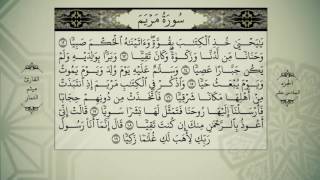 سُورَةُ مَرْيَمَ
يَٰيَحْيَىٰ خُذِ ٱلْكِتَٰبَ بِقُوَّةٍ وَءَاتَيْنَٰهُ ٱلْحُكْمَ صَبِيًّا ١٢
وَحَنَانًا مِّن لَّدُنَّا وَزَكَوٰةً وَكَانَ تَقِيًّا ١٣ وَبَرًّۢا بِوَٰلِدَيْهِ وَلَمْ
يَكُن جَبَّارًا عَصِيًّا ١٤ وَسَلَٰمٌ عَلَيْهِ يَوْمَ وُلِدَ وَيَوْمَ يَمُوتُ
وَيَوْمَ يُبْعَثُ حَيًّا ١٥ وَٱذْكُرْ فِى ٱلْكِتَٰبِ مَرْيَمَ إِذِ ٱنتَبَذَتْ
مِنْ أَهْلِهَا مَكَانًا شَرْقِيًّا ١٦ فَٱتَّخَذَتْ مِن دُونِهِمْ حِجَابًا
فَأَرْسَلْنَآ إِلَيْهَا رُوحَنَا فَتَمَثَّلَ لَهَا بَشَرًا سَوِيًّا ١٧ قَالَتْ إِنِّىٓ
أَعُوذُ بِٱلرَّحْمَٰنِ مِنكَ إِن كُنتَ تَقِيًّا ١٨ قَالَ إِنَّمَآ أَنَا۠ رَسُولُ
رَبِّكِ لِأَهَبَ لَكِ غُلَٰمًا زَكِيًّا ١٩
الجزء
السادس عشر
القارئ
ميثم
التمار